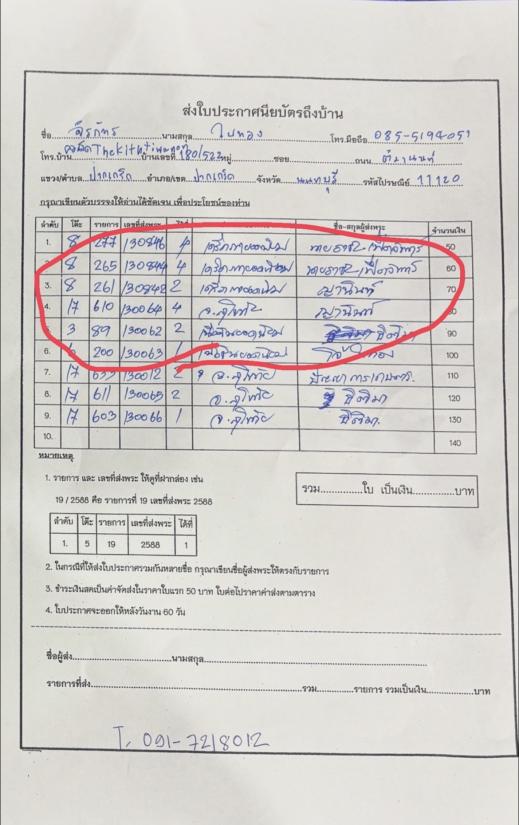 ส่งใบประกาศนียบัตรถึงบ้าน
ชื่อ จิรภัทร นามสกุล ใบทอง โทร.มือถือ 085-5194051
โทร.บ้าน บ้านเลขที่ 180/522 หมู่ ซอย ถนน
แขวง/ตำบล ปากเกร็ด อำเภอ/เขต ปากเกร็ด จังหวัด นนทบุรี รหัสไปรษณีย์ 11120
กรุณาเขียนตัวบรรจงให้อ่านได้ชัดเจน เพื่อประโยชน์ของท่าน
ลำดับ โต๊ะ รายการ เลขที่ส่งพระ ได้ที่ ชื่อ-สกุลผู้ส่งพระ จำนวนเงิน
1. 8 277 /30846 4 50
8 265 /30844 4 60
3. 8 261 /30842 2 ญานินท์ 70
4. 17 610 /30064 4 จ.สุโขทัย ญานินท์ 80
3 89 /30062 2 ธิติมา 90
6. 200 /30063 1 100
7. 17 633 /30012 2 จ.สุโขทัย 110
8. 17 611 /30065 2 จ.สุโขทัย ธิติมา 120
9. 17 603 /30066 1 จ.สุโขทัย ธิติมา 130
10. 140
หมายเหตุ
1. รายการ และ เลขที่ส่งพระ ให้ดูที่ฝากล่อง เช่น
19 / 2588 คือ รายการที่ 19 เลขที่ส่งพระ 2588
รวม..............ใบ เป็นเงิน..............บาท
ลำดับ โต๊ะ รายการ เลขที่ส่งพระ ได้ที่
1. 5 19 2588 1
2. ในกรณีที่ให้ส่งใบประกาศรวมกันหลายชื่อ กรุณาเขียนชื่อผู้ส่งพระให้ตรงกับรายการ
3. ชำระเงินสดเป็นค่าจัดส่งในราคาใบแรก 50 บาท ใบต่อไปราคาค่าส่งตามตาราง
4. ใบประกาศจะออกให้หลังวันงาน 60 วัน
ชื่อผู้ส่ง..............นามสกุล..............
รายการที่ส่ง..............รวม..............รายการ รวมเป็นเงิน..............บาท
T. 091-7218012